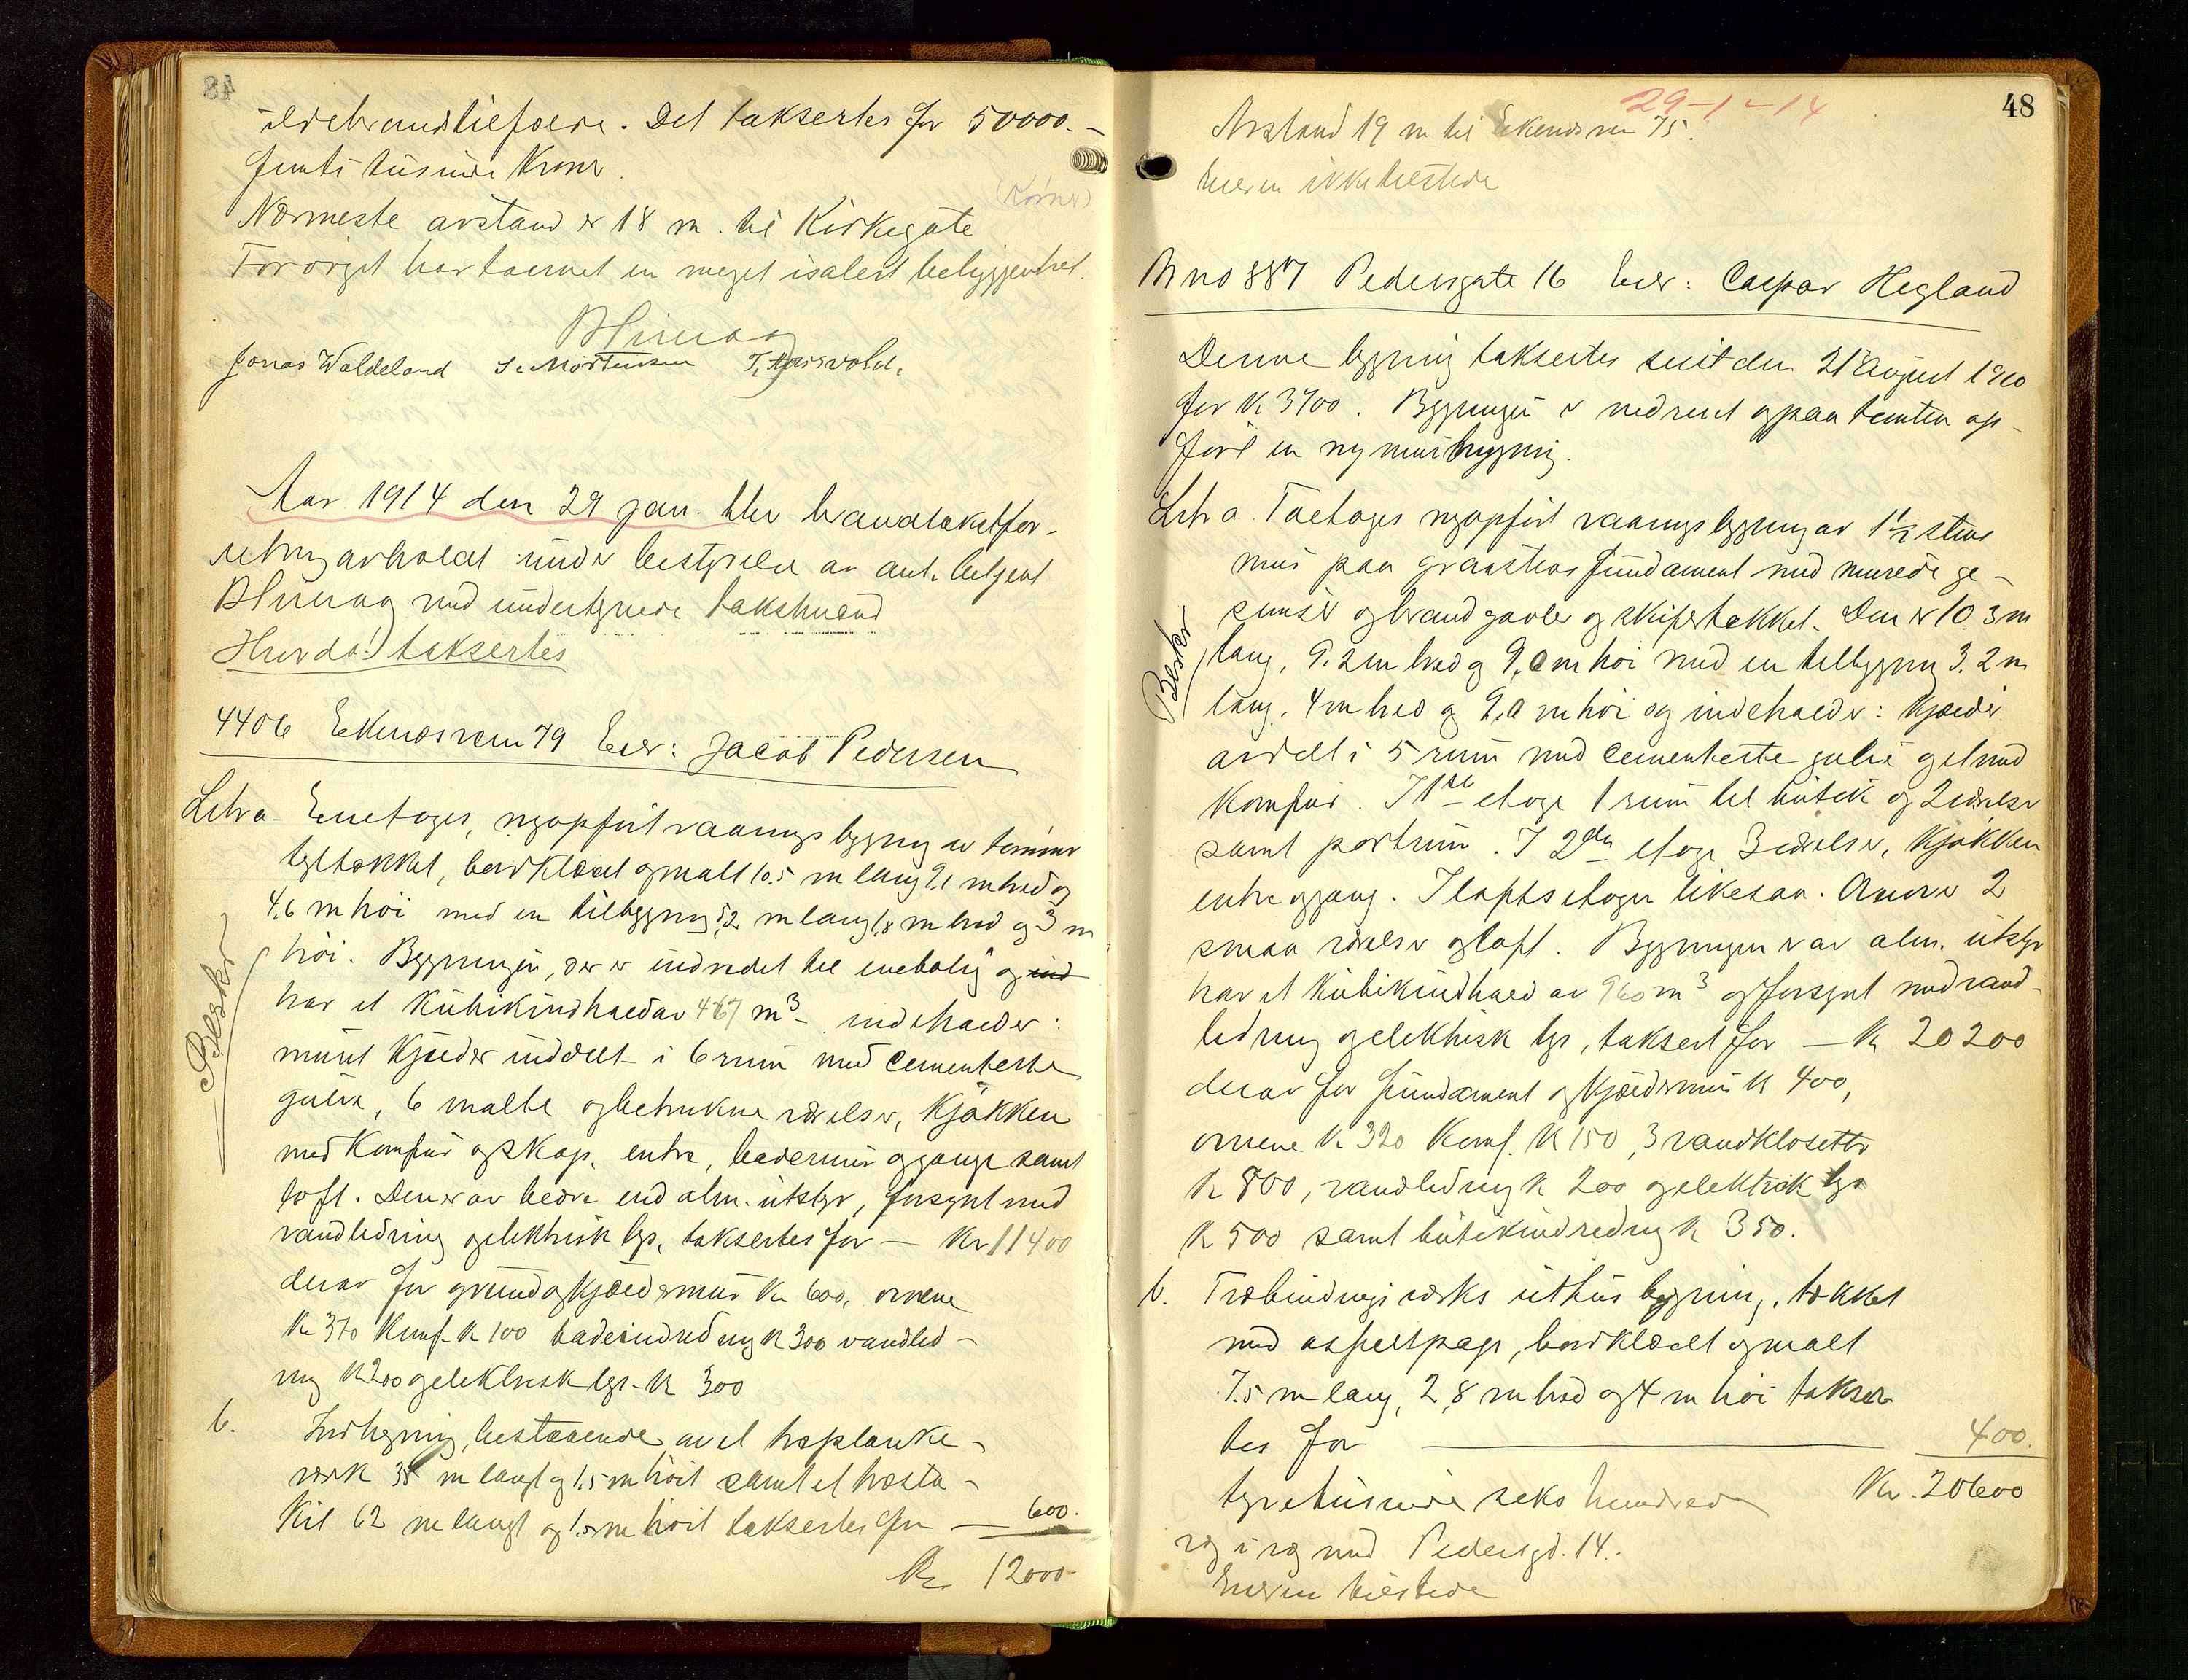 ildebrandslufsere. Det taksertes for 50000.-
femti tusinde Kroner.
(Kørner)
Nærmeste avstand er 18 m. til Kirkegate
Forøvrigt har tarnet en meget isolert beliggenhet.
Jonas Waldeland S. Mortensen T. Husvold.
Aar 1914 den 29 jan. blev brandtakstfor-
retning avholdt under bestyrelse av aut. betjent
med undertegnede takstmænd
Hvorda! taksertes
4406 Ekenæsveien 79 Eier: Jacob Pedersen
Litra a Enetages, nyopført vaaningsbygning av tømmer
tegltækket, bordklædt og malt 10.5 m lang 9.1 m bred og
4.6 m høi med en tilbygning 5.2 m lang 1.8 m bred og 3 m
høi. Bygningen, der er indredet til enebolig og ind
Beskr
har et kubikindhold av 467 m³ - indeholder:
muret kjælder inddelt i 6 rum med cementerte
gulve, 6 malte og betrukne værelser, kjøkken
med komfur og skap, entre, baderum og gange samt
loft. Den er av bedre end alm. utstyr, forsynt med
vandledning og elektrisk lys, taksertes for — Kr 11400
derav for grund og kjældermur Kr 600, ovnene
Kr 370 Komf. Kr 100 badeindredning Kr 300 vandled-
ning Kr 200 og elektrisk lys - Kr 300
b. Indhegning, bestaaende av et træplanke-
værk 38 m langt og 1.5 m høit samt et træsta-
kit 62 m langt og 1.5 m høit taksertes for — 600.
Kr 12000-
48
29-1-14
Avstand 19 m til Ekenæsvn 75.
Eieren ikke tilstede
M no 887 Pedersgate 16 Eier: Caspar Hegland
Denne bygning taksertes sidst den 21 august 1910
for Kr 3700. Bygningen er nedrevet og paa tomten op-
ført en ny murbygning.
Litra a. Toetages nyopført vaaningsbygning av 1½ stens
mur paa graastensfundament med murede ge-
simser og brandgavler og skifertækket. Den er 10.3 m
Beskr
lang, 9.2 m bred og 9.0 m høi med en tilbygning 3.2 m
lang, 4 m bred og 9.0 m høi og indeholder: Kjælder
avdelt i 5 rum med cementerte gulve og et med
komfur. I 1ste etage 1 rum til butik og 2 værelser
samt portrum. I 2den etage 3 værelser, kjøkken
entre og gang. I loftsetagen likesaa. Ovenover 2
smaa værelser og loft. Bygningen er av alm. utstyr
har et kubikindhold av 960 m³ og forsynt med vand-
ledning og elektrisk lys, taksert for — Kr 20200
derav for fundament og kjældermur Kr 400,
ovnene Kr 320 Komf. Kr 150, 3 vandklosetter
Kr 800, vandledning Kr 200 og elektrisk lys
Kr 500 samt butikindredning Kr 350.
b. Træbindingsværks uthusbygning, tækket
med asfaltpap, bordklædt og malt
7.5 m lang, 2,8 m bred og 4 m høi takser-
tes for — 400.
tyvetusinde seks hundrede Kr. 20600
væg i væg med Pedersgd. 14.
Eieren tilstede